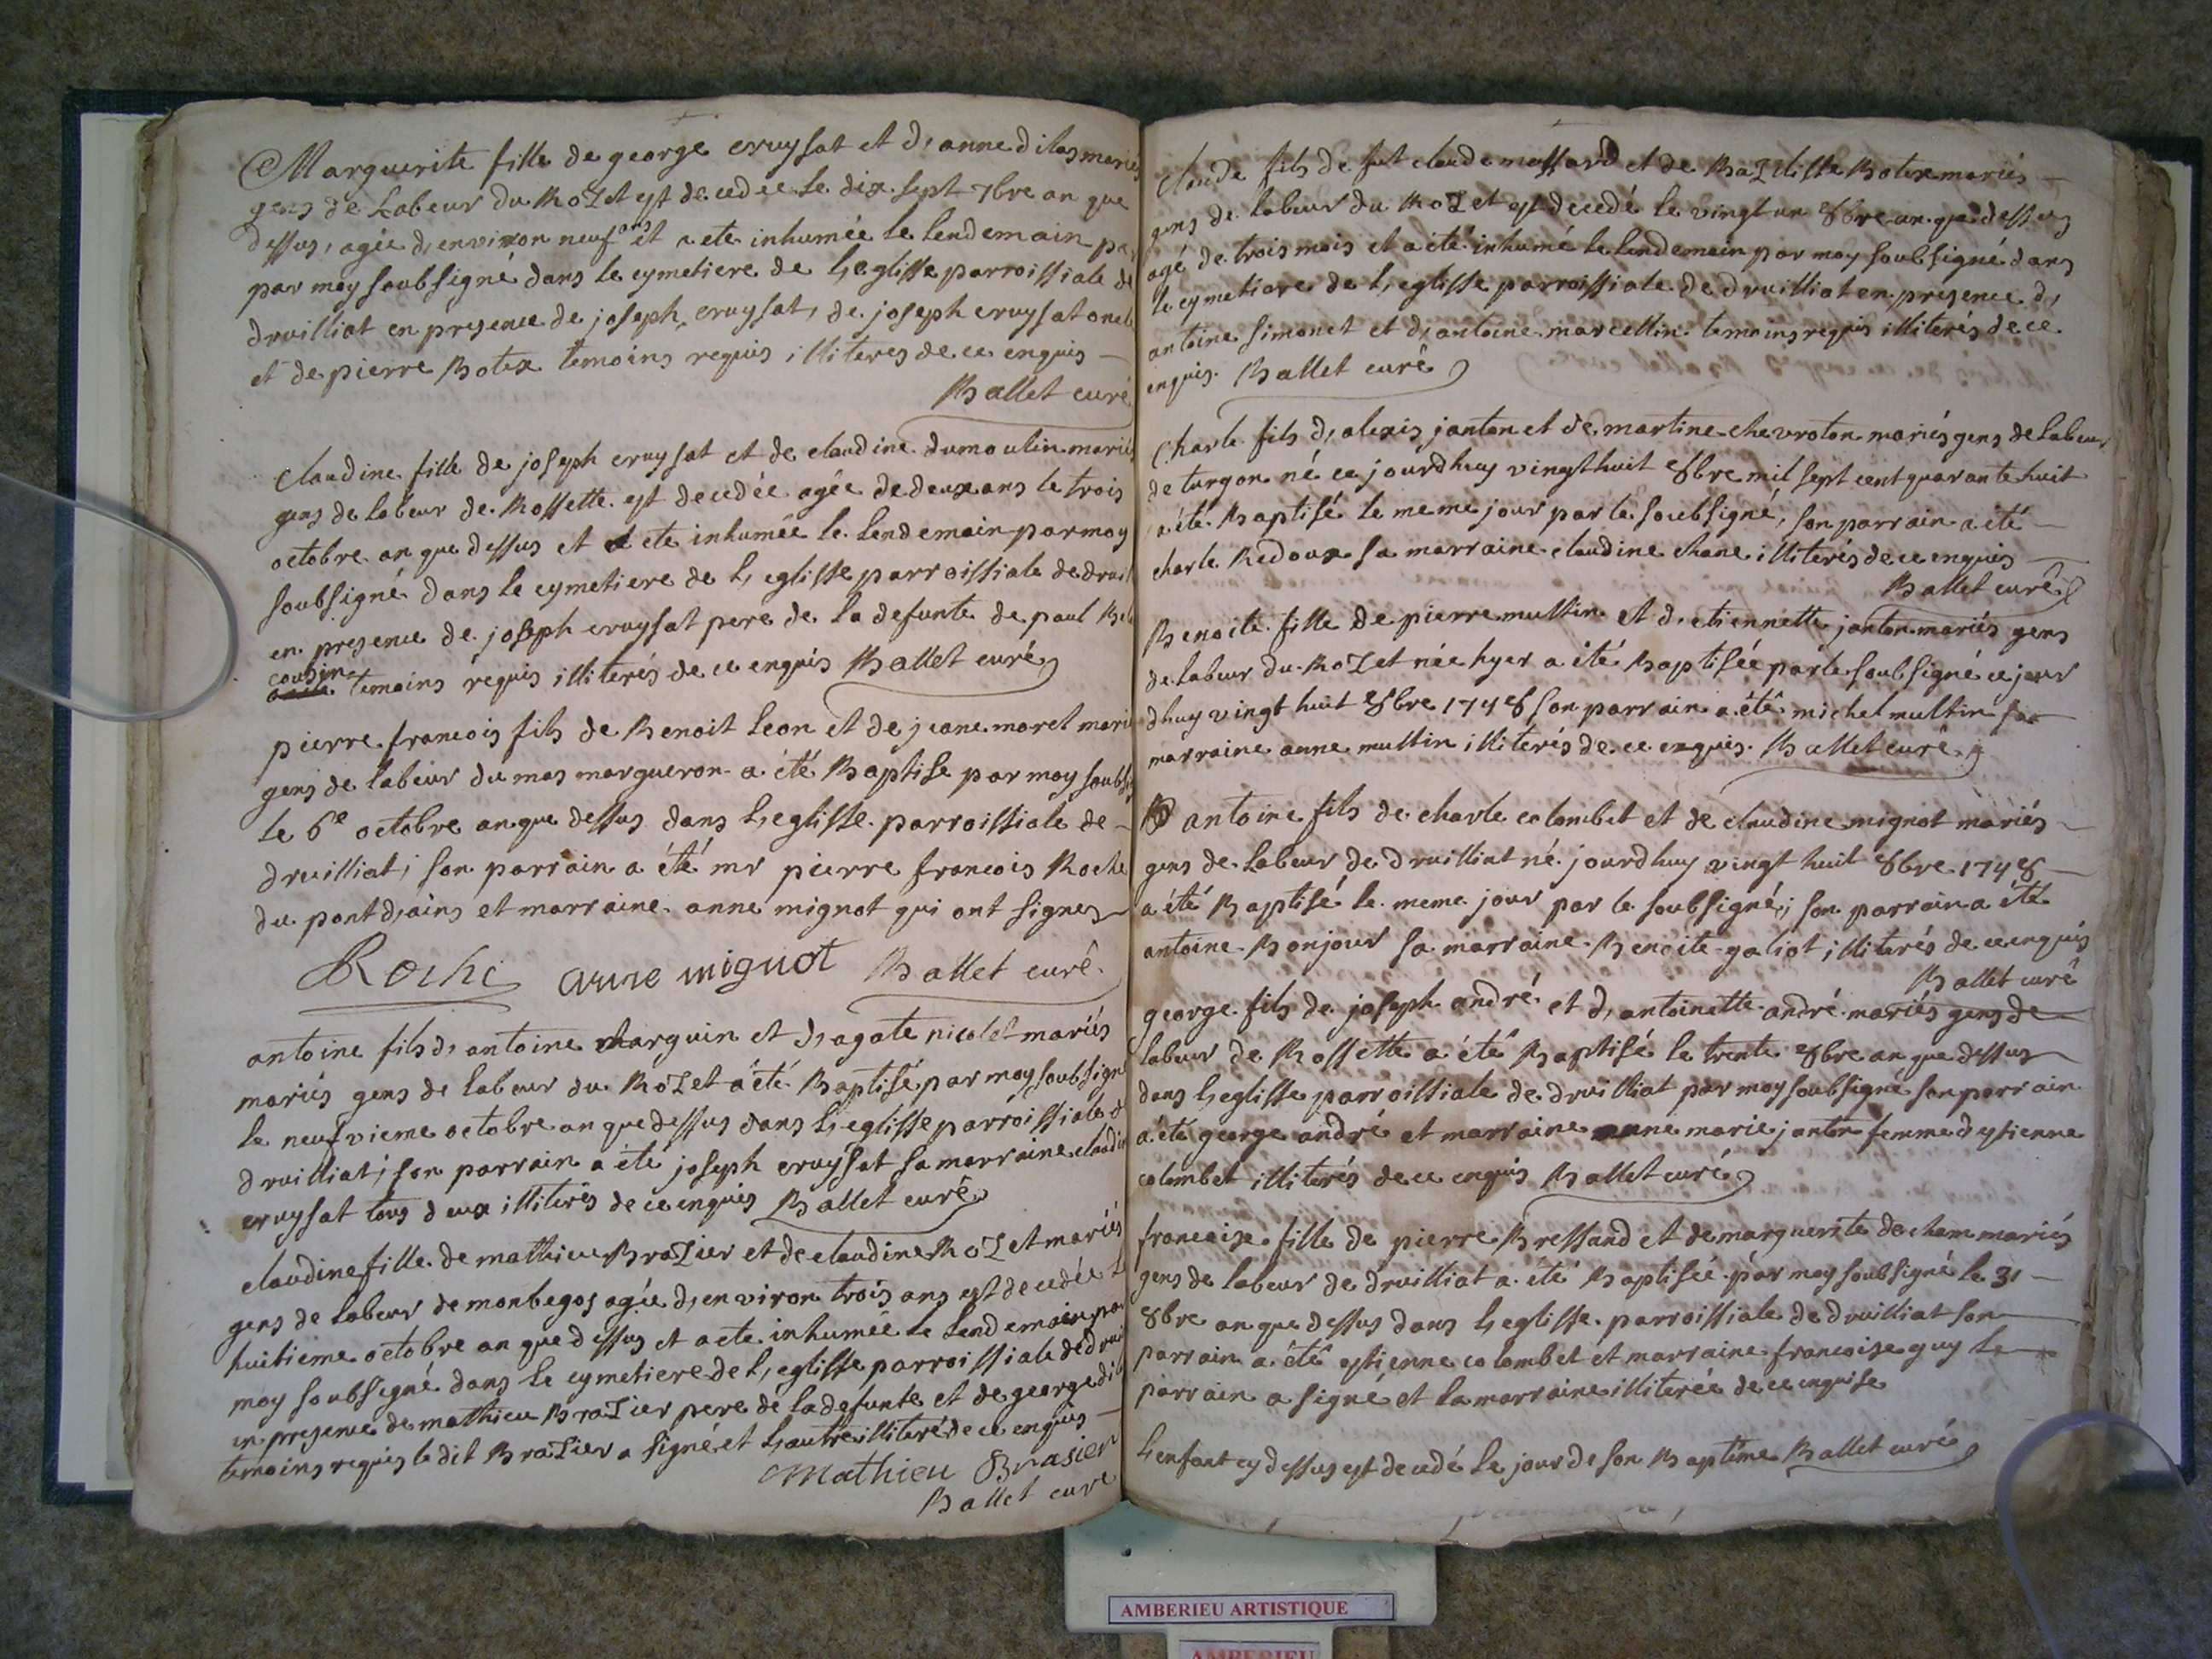 Marguerite fille de george cruysat et d, anne dilas mariés
gens de Labeur du Rozet est decedée le dix sept 7bre an que
dessus, agée d, environ neuf ans et a ete inhumée le lendemain
par moy soubsigné dans le cymetiere de L, eglisse parroissiale de
druilliat en presence de joseph cruysat, de joseph cruysat
et de pierre Botex temoins requis illiteres de ce enquis
Ballet curé
claudine fille de joseph cruysat et de claudine dumoulin mariés
gens de labeur de Rossette est decedée agée de deux ans le trois
octobre an que dessus et a ete inhumée le lendemain par moy
soubsigné dans le cymetiere de L, eglisse parroissiale de
en presence de joseph cruysat pere de la defunte de paul
cousin
temoins requis illiterés de ce enquis Ballet curé
pierre francois fils de Benoit Leon et de jeane morel
gens de labeur du mas margueron a été Baptise par moy
le 6e octobre an que dessus dans L, eglisse parroissiale de
druilliat; son parrain a été mr pierre francois Roche
du pont d, ains et marraine anne mignot qui ont signes
Roche anne mignot Ballet curé
antoine fils d, antoine charguin et d, agate nicolet mariés
mariés gens de labeur du Rozet a été Baptisé par moy soubsigné
le neufvieme octobre an que dessus dans L, eglisse parroissiale
druilliat; son parrain a été joseph cruysat sa marraine
cruysat tous deux illiterés de ce enquis Ballet curé
claudine fille de mathieu Brazier et de claudine Rozet mariés
gens de labeur de monbegos agée d, environ trois ans est decedée
huitieme octobre an que dessus et a ete inhumée le lendemain par
moy soubsigné dans le cymetiere de L, eglisse parroissiale de
en presence de mathieu Brazier pere de la defunte et de george
temoins requis le dit Brazier a signé et L, autre illiteré de ce enquis
Mathieu Brasier
Ballet curé
claude fils de fut claude mossard et de Bazilisse Botex mariés
gens de labeur du Rozet est decedé le vingt un 8bre an que dessus
agé de trois mois et a été inhumé le lendemain par moy soubsigné dans
le cymetiere de L, eglisse parroissiale de druilliat en presence d,
antoine simonet et d, antoine marcellin temoins requis illiterés de ce
enquis. Ballet curé
Charle fils d, alexis janton et de martine chevroton mariés gens de labeur
de turgon né ce jourdhuy vingt huit 8bre mil sept cent quarante huit
a été Baptisé le meme jour par le soubsigné, son parrain a été
charle Redoux sa marraine claudine chane illiterés de ce enquis
Ballet curé
Benoite fille de pierre multin et d, etiennette janton mariés gens
de labeur du Rozet née hyer a été Baptisée par le soubsigné ce jour
dhuy vingt huit 8bre 1748 son parrain a été michel multin sa
marraine anne multin illiterés de ce enquis. Ballet curé
antoine fils de charle colombet et de claudine mignot mariés
gens de labeur de druilliat né jourdhuy vingt huit 8bre 1748
a été Baptisé le meme jour par le soubsigné; son parrain a été
antoine Bonjour sa marraine Benoite galiot illiterés de ce enquis
Ballet curé
george fils de joseph andré et d, antoinette andré mariés gens de
labeur de Rossette a été Baptisé le trente 8bre an que dessus
dans L, eglisse parroissiale de druilliat par moy soubsigné son parrain
a été george andré et marraine anne marie janton femme d, estienne
colombet illiterés de ce enquis Ballet curé
francoise fille de pierre Bressand et de marguerite decham mariés
gens de labeur de druilliat a été Baptisée par moy soubsigné le 31
8bre an que dessus dans L, eglisse parroissiale de druilliat son
parrain a été estienne colombet et marraine francoise guy le
parrain a signé et la marraine illiterée de ce enquise
L, enfant cy dessus est decedé le jour de son Baptême Ballet curé
AMBERIEU ARTISTIQUE
AMBERIEU